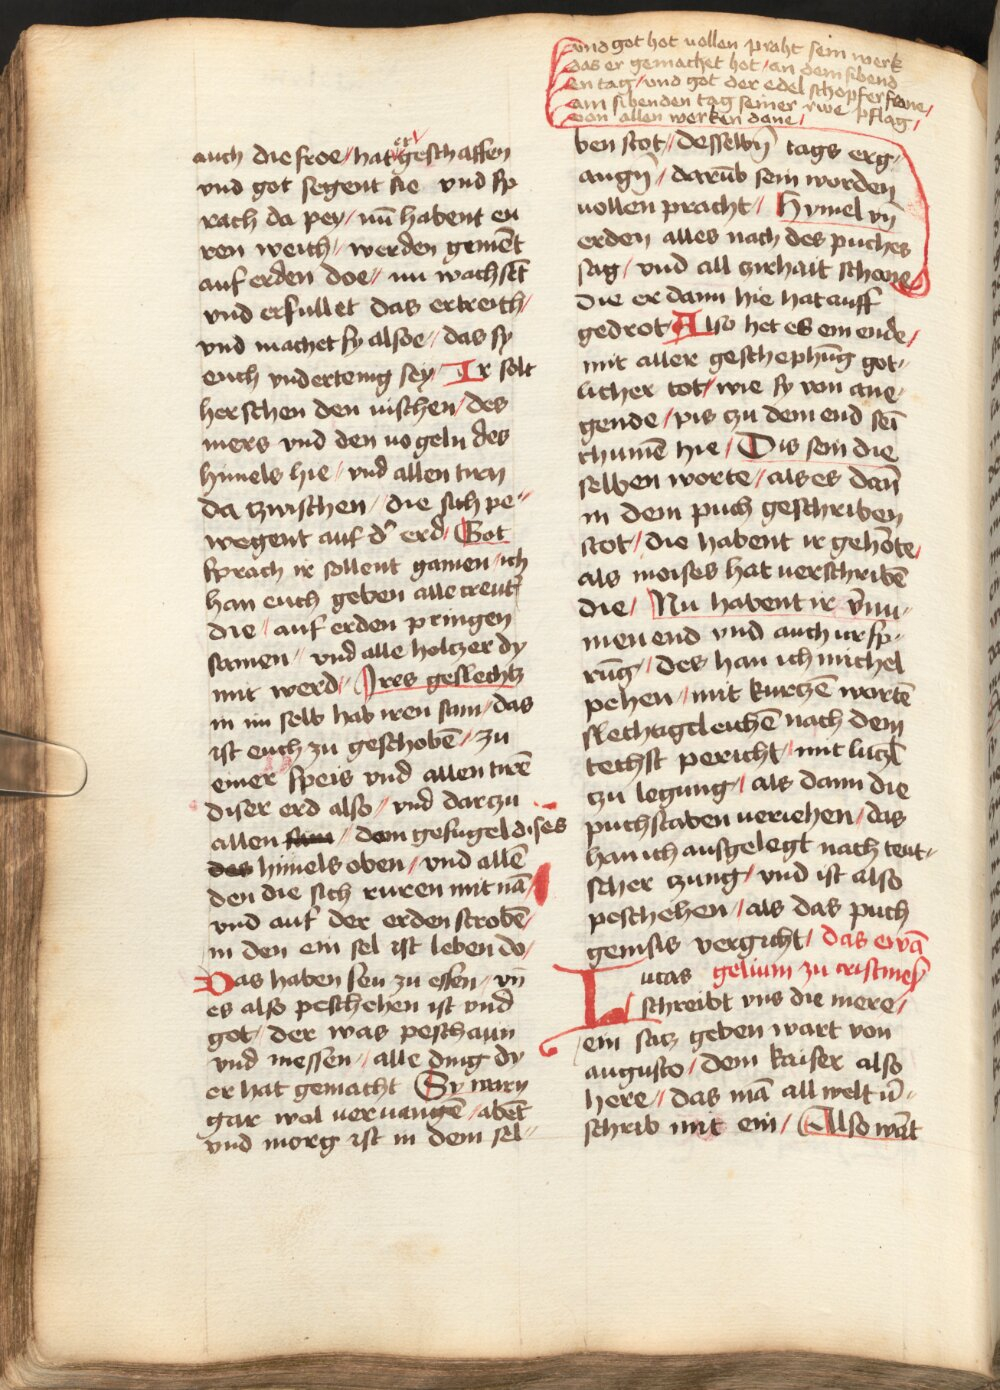 auch die froe / hat er geschaffen
vnd got segent sie vnd sp
rach da pey / nu᷄ habent eu
ren weich / werden geme᷄t
auf erden doe / nu wachse᷄t
vnd erfullet das ertreich /
vnd machet sy alsoe / das sy
euch vndertenig sey / Ir solt
herschen den vischen / des
mers vnd den vogeln des
himels hie / vnd allen tirn
da zwischen / die sich pe-
wegent auf d' erd / Got
sprach ir sollent gamen / ich
han euch geben alle creut'
die / auf erden pringen
samen / vnd alle holtzer dy
mit werd / Ires geslechtz
in im selb hab iren sam / das
ist euch zu geschobe᷄ / zu
einer speis vnd allen tire᷄
diser erd also / vnd darzu
allen dem gefugel dises
des himels oben / vnd alle᷄
den die sich ruren mit na᷄ /
vnd auf der erden strobe᷄ /
in den ein sel ist leben do /
Das haben seu zu essen / vn᷄
es also peschehen ist vnd
got / der was peschaun
vnd messen / alle ding dy
er hat gemacht Sy warn
gar wol vervange᷄ / abe᷄t
vnd morg ist in dem sel-
vnd got hot vollen praht sein werk
das er gemachet hot / an dem sibend
en tag / vnd got der edel schopfer frane /
am sibenden tag seiner rwe pflag /
von allen werken dane /
ben stot / desselbn᷄ tags erg-
angn᷄ / daru᷄b sein worden
vollen pracht / Hymel vn᷄
erden alles nach des puches
sag / vnd all zirhait schone
die er dann hie hat auff
gedrot Also het es ein ende /
mit aller geschephu᷄g got-
licher tot / wie sy von ane-
gende / pis zu dem end sei᷄
chume᷄ hie / Dis sein die
selben worte / als es dan᷄
in dem puch geschriben
stot / die habent ir gehorte /
als moises hat verschribe᷄
die / Nu habent ir v᷄nu-
men end vnd auch vrsp-
ru᷄g / des han ich michel
pehen / mit kurcze᷄ worte᷄
slechtigcleiche᷄ nach dem
techst pericht / mit luczl
zu legung / als dann die
puchstaben veriehen / das
han ich ausgelegt nach teut-
scher zung / vnd ist also
peschehen / als das puch
genisis vergicht / das ewa᷄
Lucas gelium zu cristmes
schreibt vns die mere /
ein satz geben wart von
augusto / dem kaiser also
here / das ma᷄ all welt v᷄-
schrib mit ein / Also wa᷄t